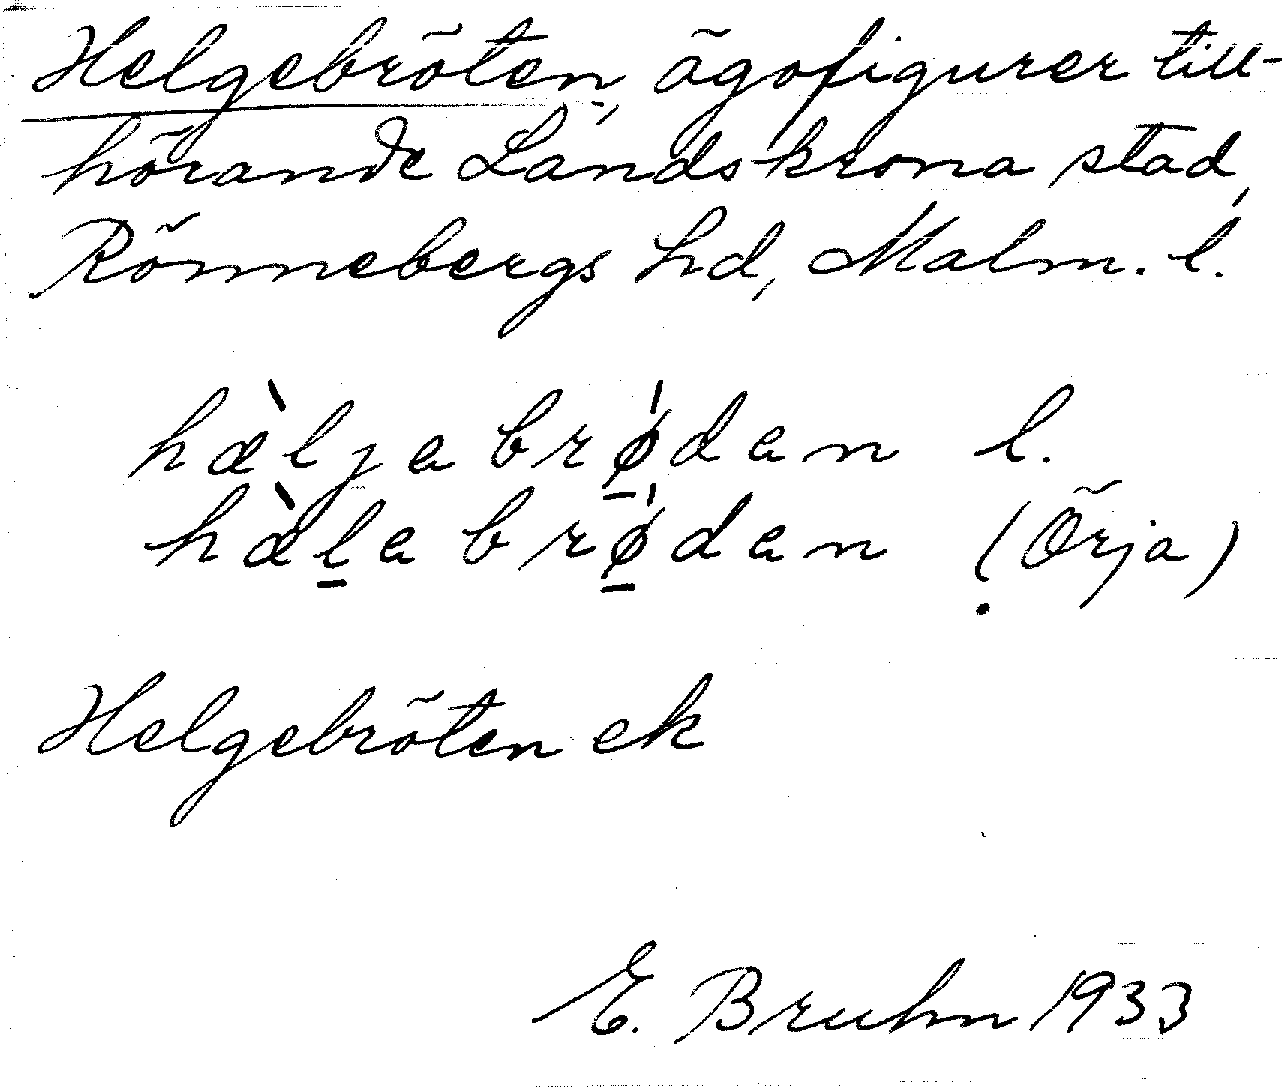 Helgebröten, ägofigurer till-
hörande Landskrona stad,
Rönnebergs hd, Malm. l.
hæ̀ljabrǿ̱dan l.
hæ̀ḻabrǿ̱dan (Örja)
Helgebröten ek
E. Bruhn 1933